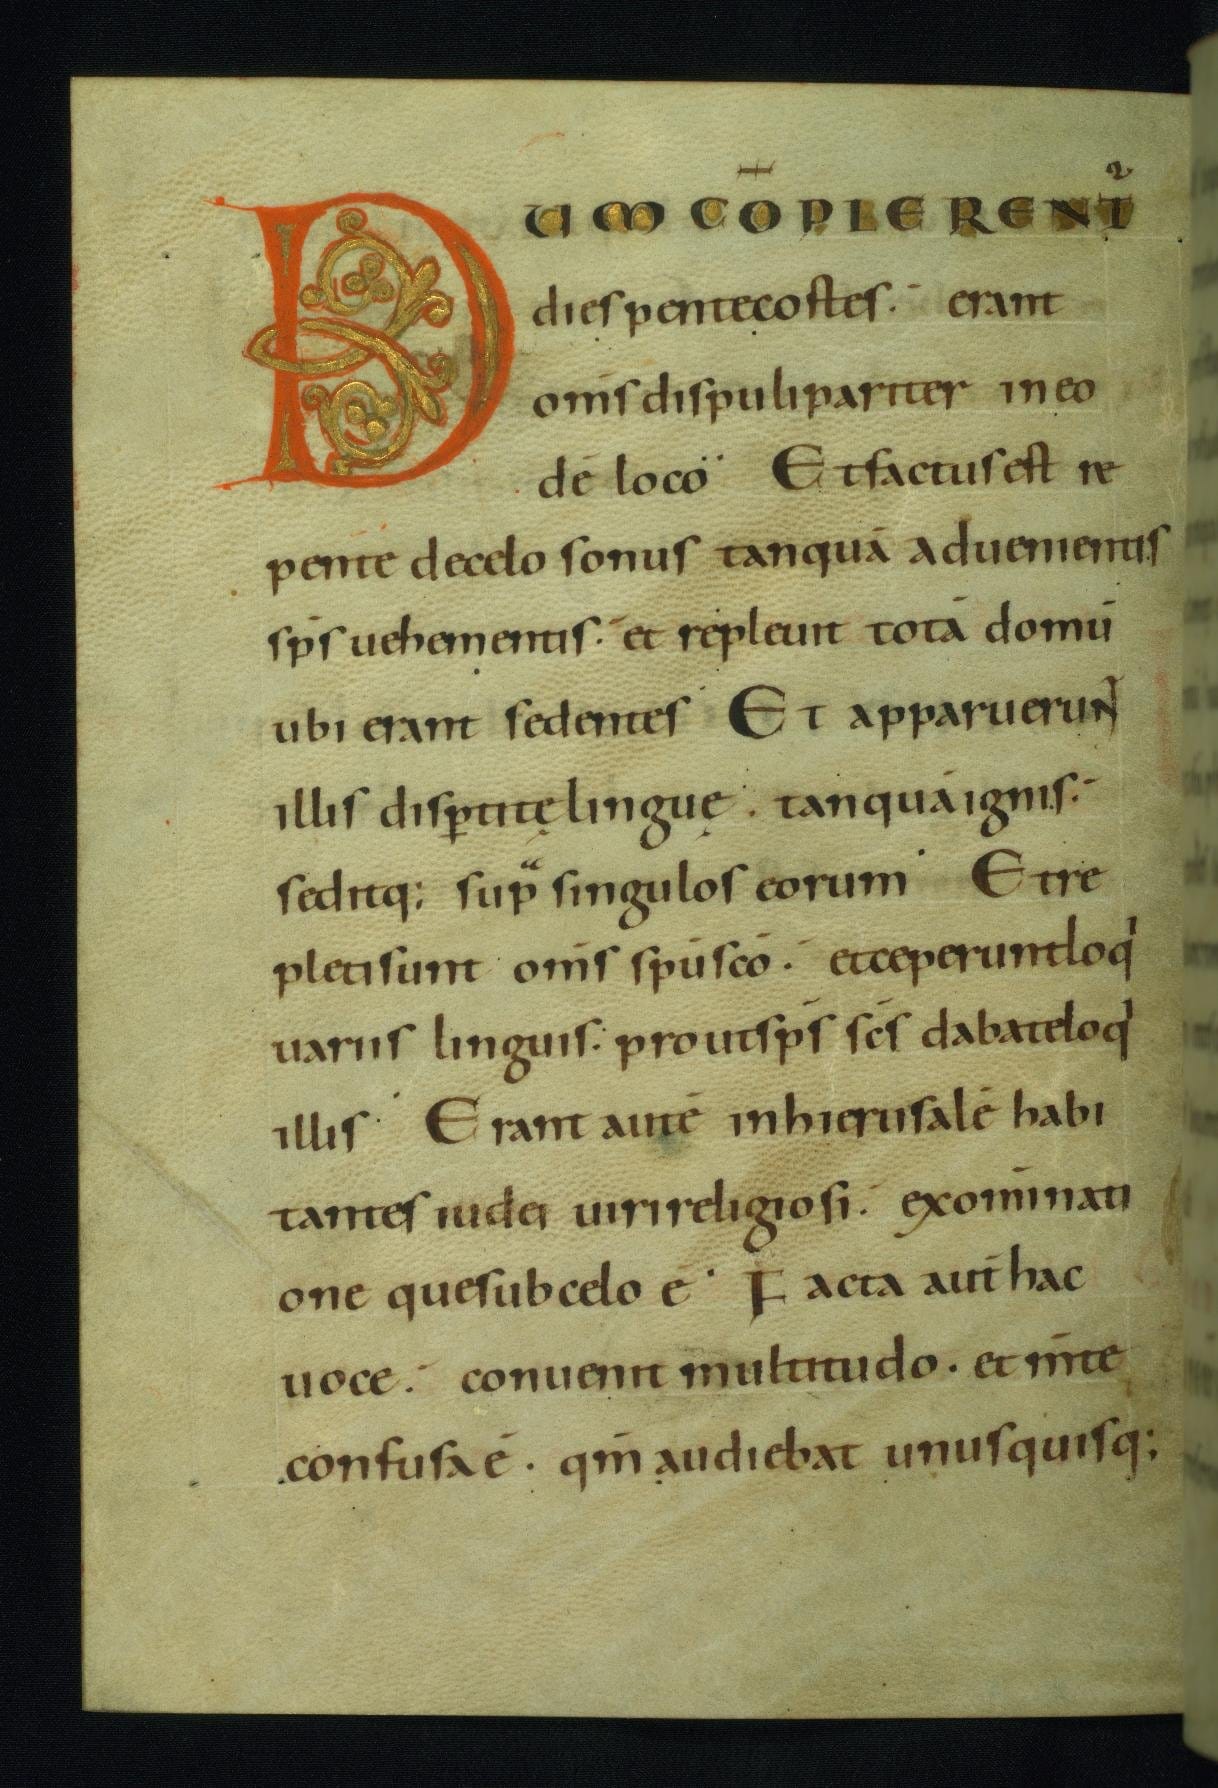 DUM CŌPLERENT̄
dies pentecostes. erant
om̄s discipuli pariter in eo
dē loco Et factus est re
pente de celo sonus tanquā aduenientis
sp̄s uehementis. et repleuit totā domū
ubi erant sedentes Et apparuerun̄
illis dispꝑtitę linguę. tanquā ignis.
seditq; supᵃ singulos eorum Et re
pleti sunt om̄s sp̄u scō. et ceperunt loq̍
uariis linguis. prout sp̄s sc̄s dabat eloq̍
illis Erant autē in hierusalē habi
tantes iudei uiri religiosi. ex om̄i nati
one que sub celo ē Facta aut̄ hac
uoce. conuenit multitudo. et m̄te
confusa ē. qm̄ audiebat unusquisq;